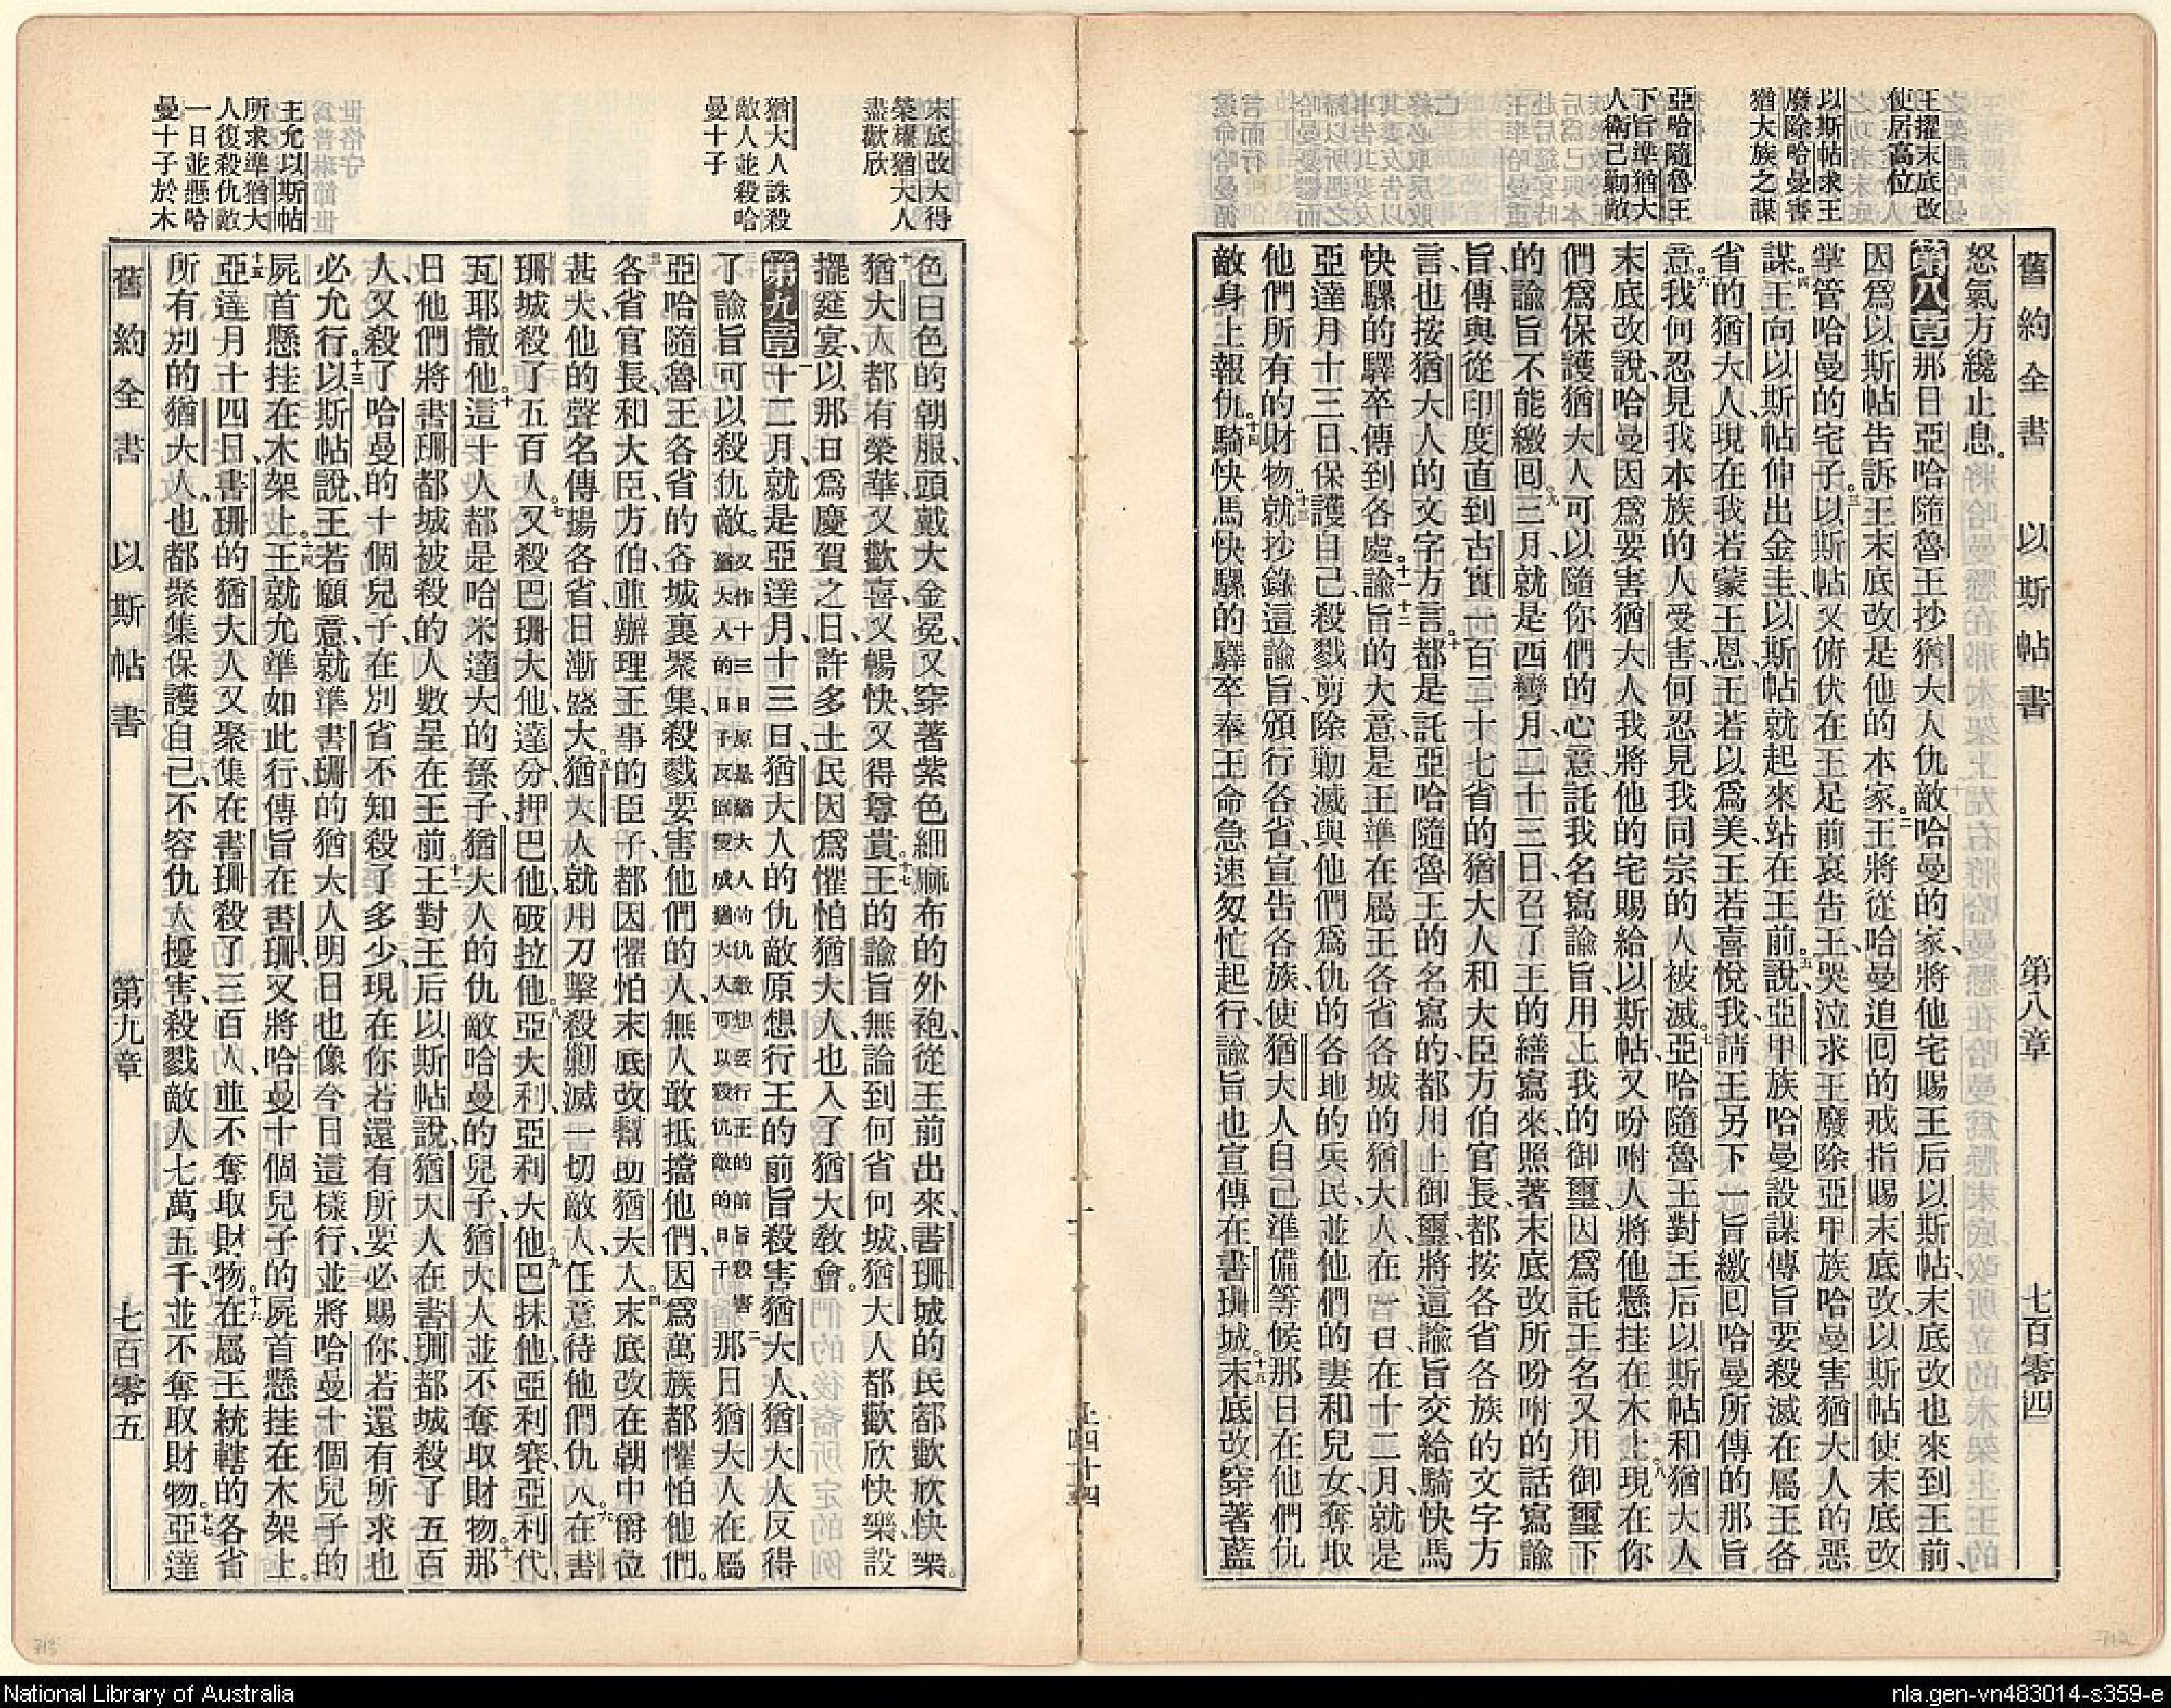 舊約全書 以斯帖書 第八章 七百零四
王擢末底改
使居高位
以斯帖求王
廢除哈曼害
猶大族之謀
亞哈隨魯王
下旨準猶大
人衛己勦敵
怒氣方纔止息。
第八章 那日亞哈隨魯王抄猶大人仇敵哈曼的家、將他宅賜王后以斯帖、末底改也來到王前、
因爲以斯帖告訴王末底改是他的本家。二王將從哈曼追回的戒指賜末底改、以斯帖使末底改
掌管哈曼的宅子。三以斯帖又俯伏在王足前哀告王、哭泣求王廢除亞甲族哈曼害猶大人的惡
謀。四王向以斯帖伸出金圭、以斯帖就起來站在王前。五說、亞甲族哈曼設謀傳旨要殺滅在屬王各
省的猶大人、現在我若蒙王恩、王若以爲美、王若喜悅我、請王另下一旨繳回哈曼所傳的那旨
意。六我何忍見我本族的人受害、何忍見我同宗的人被滅。七亞哈隨魯王對王后以斯帖和猶大人
末底改說、哈曼因爲要害猶大人我將他的宅賜給以斯帖、又吩咐人將他懸挂在木上。八現在你
們爲保護猶大人可以隨你們的心意、託我名寫諭旨用上我的御璽、因爲託王名又用御璽下
的諭旨不能繳回。九三月、就是西彎月二十三日、召了王的繕寫來、照著末底改所吩咐的話寫諭
旨、傳與從印度直到古實一百二十七省的猶大人和大臣方伯官長、都按各省各族的文字方
言、也按猶大人的文字方言。十都是託亞哈隨魯王的名寫的、都用上御璽、將這諭旨交給騎快馬
快騾的驛卒傳到各處。十一十二諭旨的大意、是王準在屬王各省各城的猶大人在一日、在十二月、就是
亞達月十三日、保護自己、殺戮剪除勦滅與他們爲仇的各地的兵民、並他們的妻和兒女、奪取
他們所有的財物。十三就抄錄這諭旨、頒行各省、宣告各族、使猶大人自己準備等候那日在他們仇
敵身上報仇。十四騎快馬快騾的驛卒奉王命急速匆忙起行、諭旨也宣傳在書珊城。十五末底改穿著藍
上四十四
末底改大得
榮耀猶大人
盡歡欣
猶大人誅殺
敵人並殺哈
曼十子
主允以斯帖
所求準猶大
人復殺仇敵
一日並懸哈
曼十子於木
色白色的朝服、頭戴大金冕、又穿著紫色細蔴布的外袍、從王前出來、書珊城的民都歡欣快樂。
十六猶大人都有榮華、又歡喜、又暢快、又得尊貴。十七王的諭旨無論到何省何城、猶大人都歡欣快樂、設
擺筵宴、以那日爲慶賀之日、許多土民因爲懼怕猶大人、也入了猶大教會。
第九章 一十二月、就是亞達月、十三日、猶大人的仇敵原想行王的前旨殺害猶大人、猶大人反得
了諭旨可以殺仇敵。又作十三日原是猶大人的仇敵想要行王的前旨殺害猶大人的日子反倒變成猶大人可以殺仇敵的日子二那日猶大人在屬
亞哈隨魯王各省的各城裏聚集、殺戮要害他們的人、無人敢抵擋他們、因爲萬族都懼怕他們。
三各省官長、和大臣方伯、並辦理王事的臣子、都因懼怕末底改、幫助猶大人。四末底改在朝中爵位
甚大、他的聲名傳揚各省、日漸盛大。五猶大人就用刀擊殺勦滅一切敵人、任意待他們仇人。六在書
珊城殺了五百人。七又殺巴珊大他、達分、押巴他、八破拉他、亞大利、亞利大他、九巴抹他、亞利賽、亞利代、
瓦耶撒他。十這十人都是哈米達大的孫子、猶大人的仇敵哈曼的兒子、猶大人並不奪取財物。十一那
日他們將書珊都城被殺的人數呈在王前。十二王對王后以斯帖說、猶大人在書珊都城殺了五百
人、又殺了哈曼的十個兒子、在別省不知殺了多少、現在你若還有所要必賜你、若還有所求也
必允行。十三以斯帖說、王若願意、就準書珊的猶大人明日也像今日這樣行、並將哈曼十個兒子的
屍首懸挂在木架上。十四王就允準如此行、傳旨在書珊、又將哈曼十個兒子的屍首懸挂在木架上。
十五亞達月十四日、書珊的猶大人又聚集在書珊殺了三百人、並不奪取財物。十六在屬王統轄的各省
所有別的猶大人、也都聚集保護自己、不容仇人擾害、殺戮敵人七萬五千、並不奪取財物。十七亞達
舊約全書 以斯帖書 第九章 七百零五
713
712
National Library of Australia
nla.gen-vn483014-s359-e